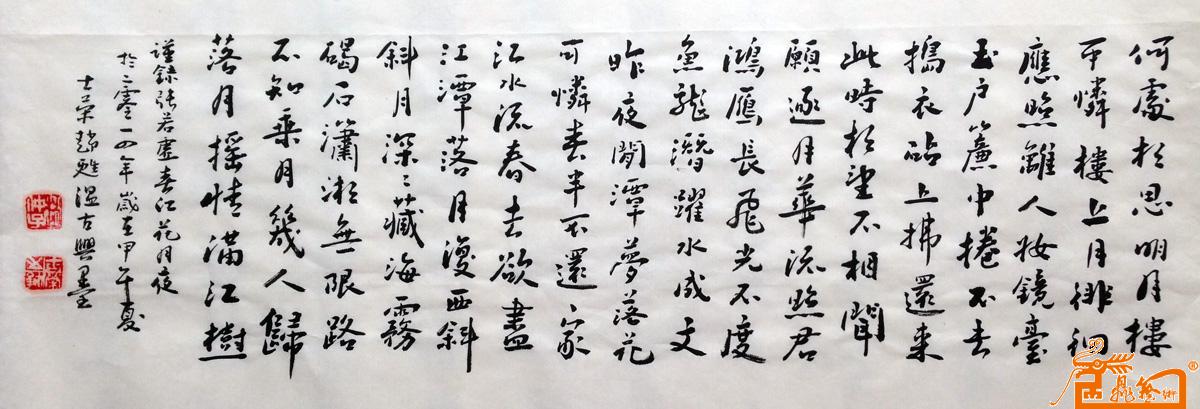 何處相思明月樓
可憐樓上月徘徊
應照離人妝鏡臺
玉戶簾中捲不去
搗衣砧上拂還來
此時相望不相聞
願逐月華流照君
鴻雁長飛光不度
魚龍潛躍水成文
昨夜閒潭夢落花
可憐春半不還家
江水流春去欲盡
江潭落月復西斜
斜月深々藏海霧
碣石瀟湘無限路
不知乘月幾人歸
落月搖情滿江樹
謹錄張若虛春江花月夜
於二零一四年歲在甲午夏
士榮趙甦溫古興墨